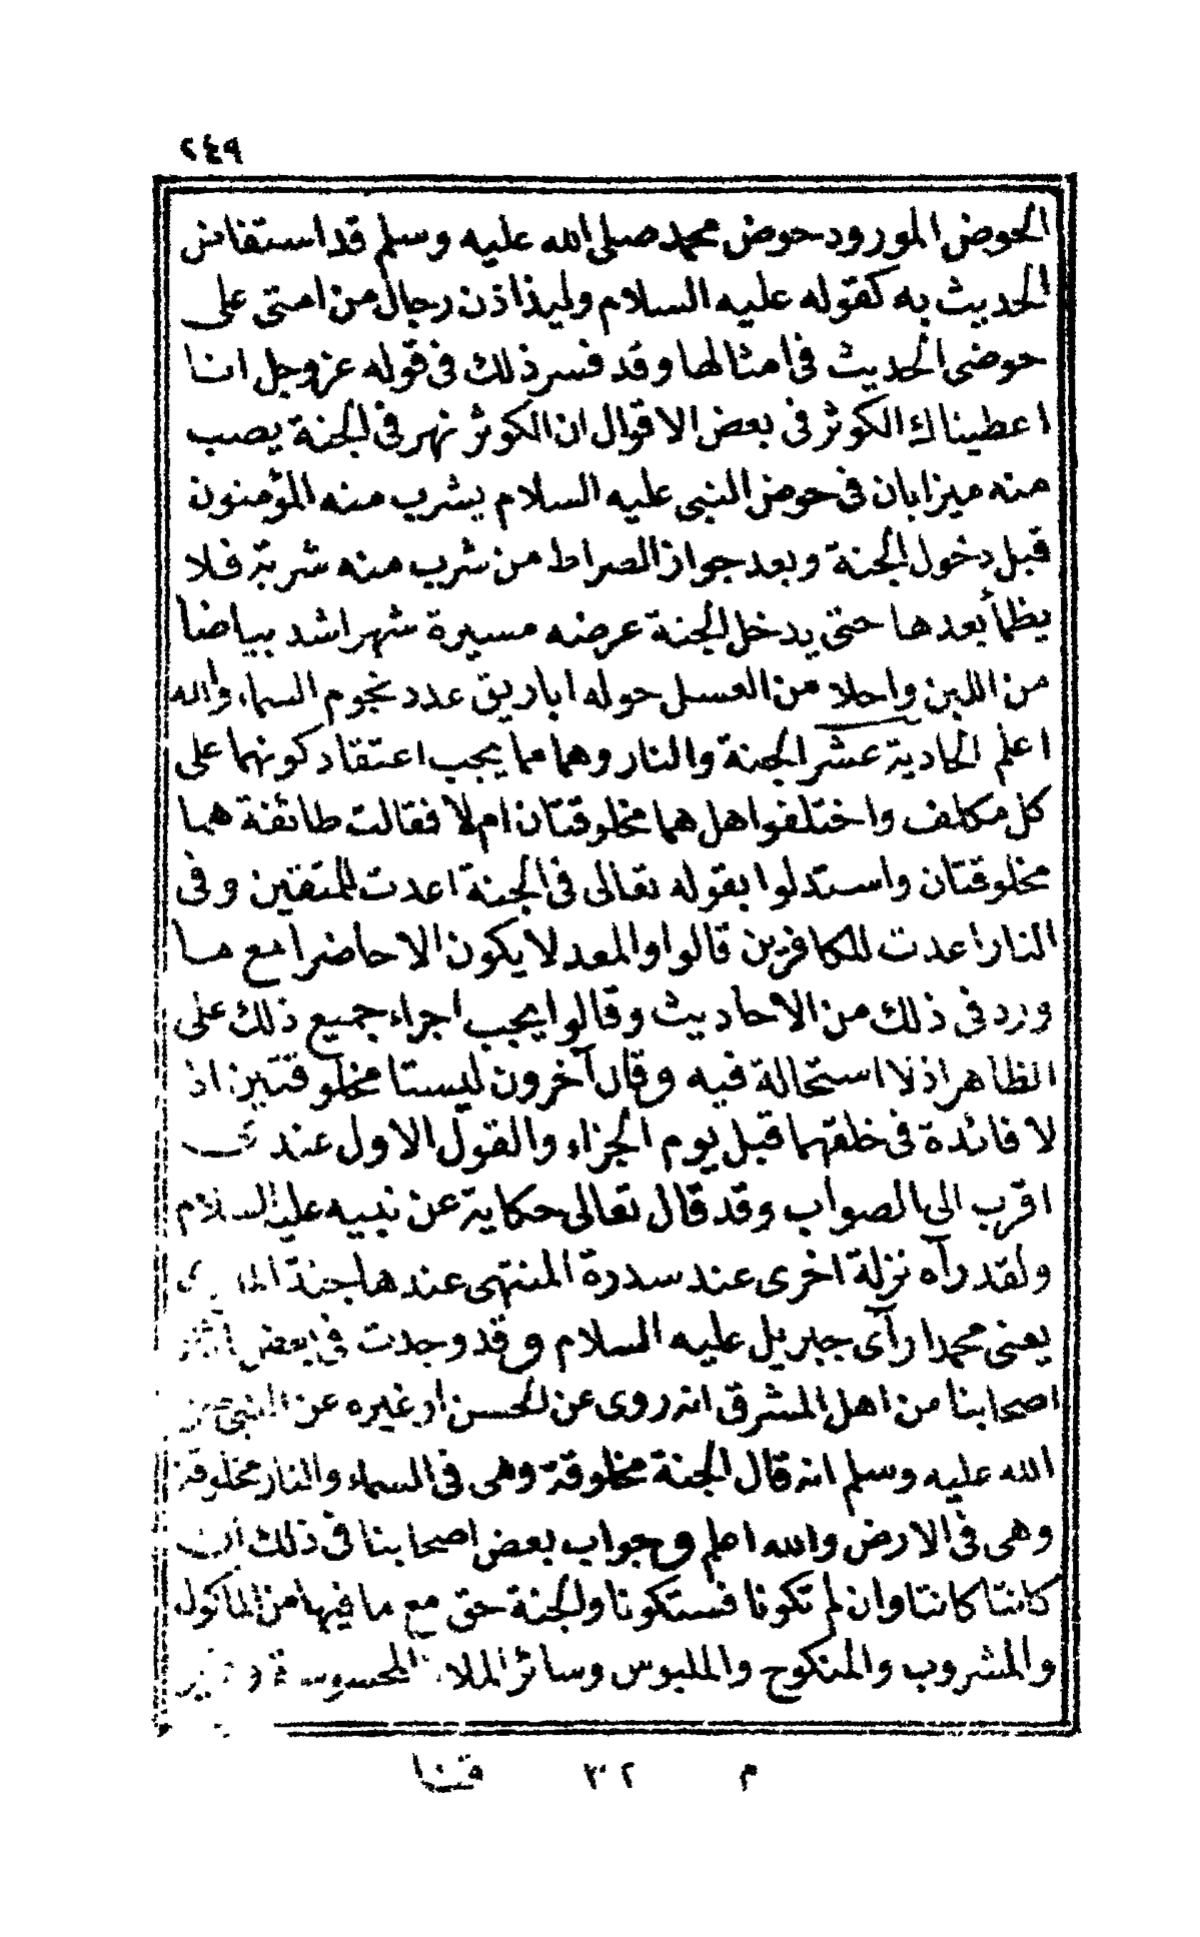 ٢٤٩
الحوض المورود حوض محمد صلى الله عليه وسلم قد استفاض
الحديث به كقوله عليه السلام وليذاذن رجال من امتى على
حوضى الحديث فى امثالها وقد فسر ذلك فى قوله عز وجل انا
اعطيناك الكوثر فى بعض الاقوال ان الكوثر نهر فى الجنة يصب
منه ميزابان فى حوض النبى عليه السلام يشرب منه المؤمنون
قبل دخول الجنة وبعد جواز الصراط من شرب منه شربة فلا
يظمأ بعدها حتى يدخل الجنة عرضه مسيرة شهر اشد بياضا
من اللبن واحلا من العسل حوله اباريق عدد نجوم السماء والله
اعلم الحادية عشر الجنة والنار وهما مما يجب اعتقاد كونهما على
كل مكلف واختلفوا هل هما مخلوقتان ام لا فقالت طائفة هما
مخلوقتان واستدلوا بقوله تعالى فى الجنة اعدت للمتقين وفى
النار اعدت للكافرين قالوا والمعد لا يكون الا حاضرا مع ما
ورد فى ذلك من الاحاديث وقالوا يجب اجراء جميع ذلك على
الظاهر اذ لا استحالة فيه وقال آخرون ليستا مخلوقتين اذ
لا فائدة فى خلقهما قبل يوم الجزاء والقول الاول عند
اقرب الى الصواب وقد قال تعالى حكاية عن نبيه عليه السلام
ولقد رآه نزلة اخرى عند سدرة المنتهى عندها جنة
يعنى محمدا رآى جبريل عليه السلام وقد وجدت فى بعض
اصحابنا من اهل المشرق انه روى عن الحسن او غيره عن النبى
الله عليه وسلم انه قال الجنة مخلوقة وهى فى السماء والنار مخلوقة
وهى فى الارض والله اعلم وجواب بعض اصحابنا فى ذلك ان
كانتا كانتا وان لم تكونا فستكونا والجنة حق مع ما فيها من الماكول
والمشروب والمنكوح والملبوس وسائر الملاذ المحسوسة
م ٣٢ قنا